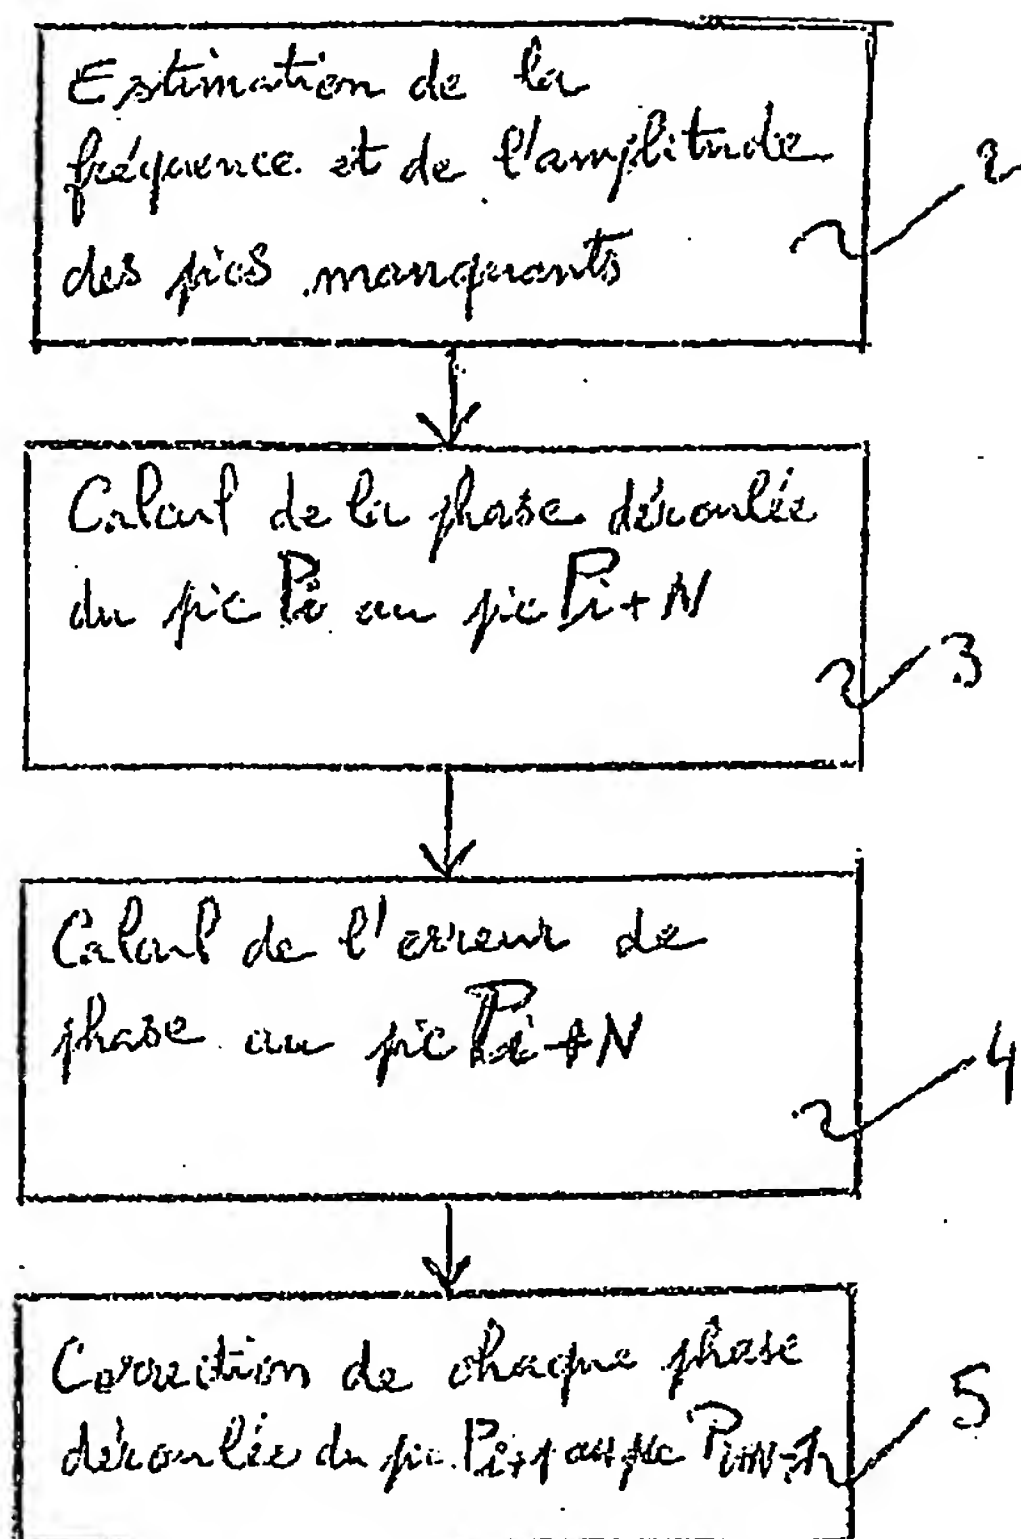 Estimation de la
fréquence et de l'amplitude
des pics manquants
2
Calcul de la phase déroulée
du pic Pi au pic Pi+N
3
Calcul de l'erreur de
phase au pic Pi+N
4
Correction de chaque phase
déroulée du pic Pi+1 au pic Pi+N-1
5